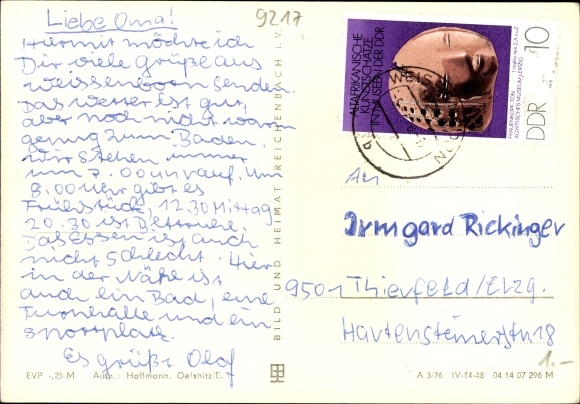 Liebe Oma!
Hiermit möchte ich
Dir viele Grüße aus
weissenborn senden.
Das wetter ist gut,
aber noch nicht warm
genug zum Baden.
wir stehen immer
um 7.00 Uhr auf. Um
8.00 Uhr gibt es
Frühstück, 12.30 Mittag
20.30 ist Bettruhe.
Das Essen ist auch
nicht schlecht. Hier
in der Nähe ist
auch ein Bad, eine
Turnhalle und ein
sportplatz.
Es grüßt Olaf
EVP -,25 M Aufn.: Hoffmann, Oelsnitz/E.
9217
BILD UND HEIMAT REICHENBACH I. V.
ALTAFRIKANISCHE
KUNSTSCHÄTZE
IN MUSEEN DER DDR
FRAUENKOPF, TON
ÄGYPTISCHES MUSEUM LEIPZIG
DDR 10
An
Irmgard Rickinger
9501 Thierfeld/Erzg.
Hartensteinerstr. 18
1.-
A 3/76 IV-14-48 04 14 07 296 M